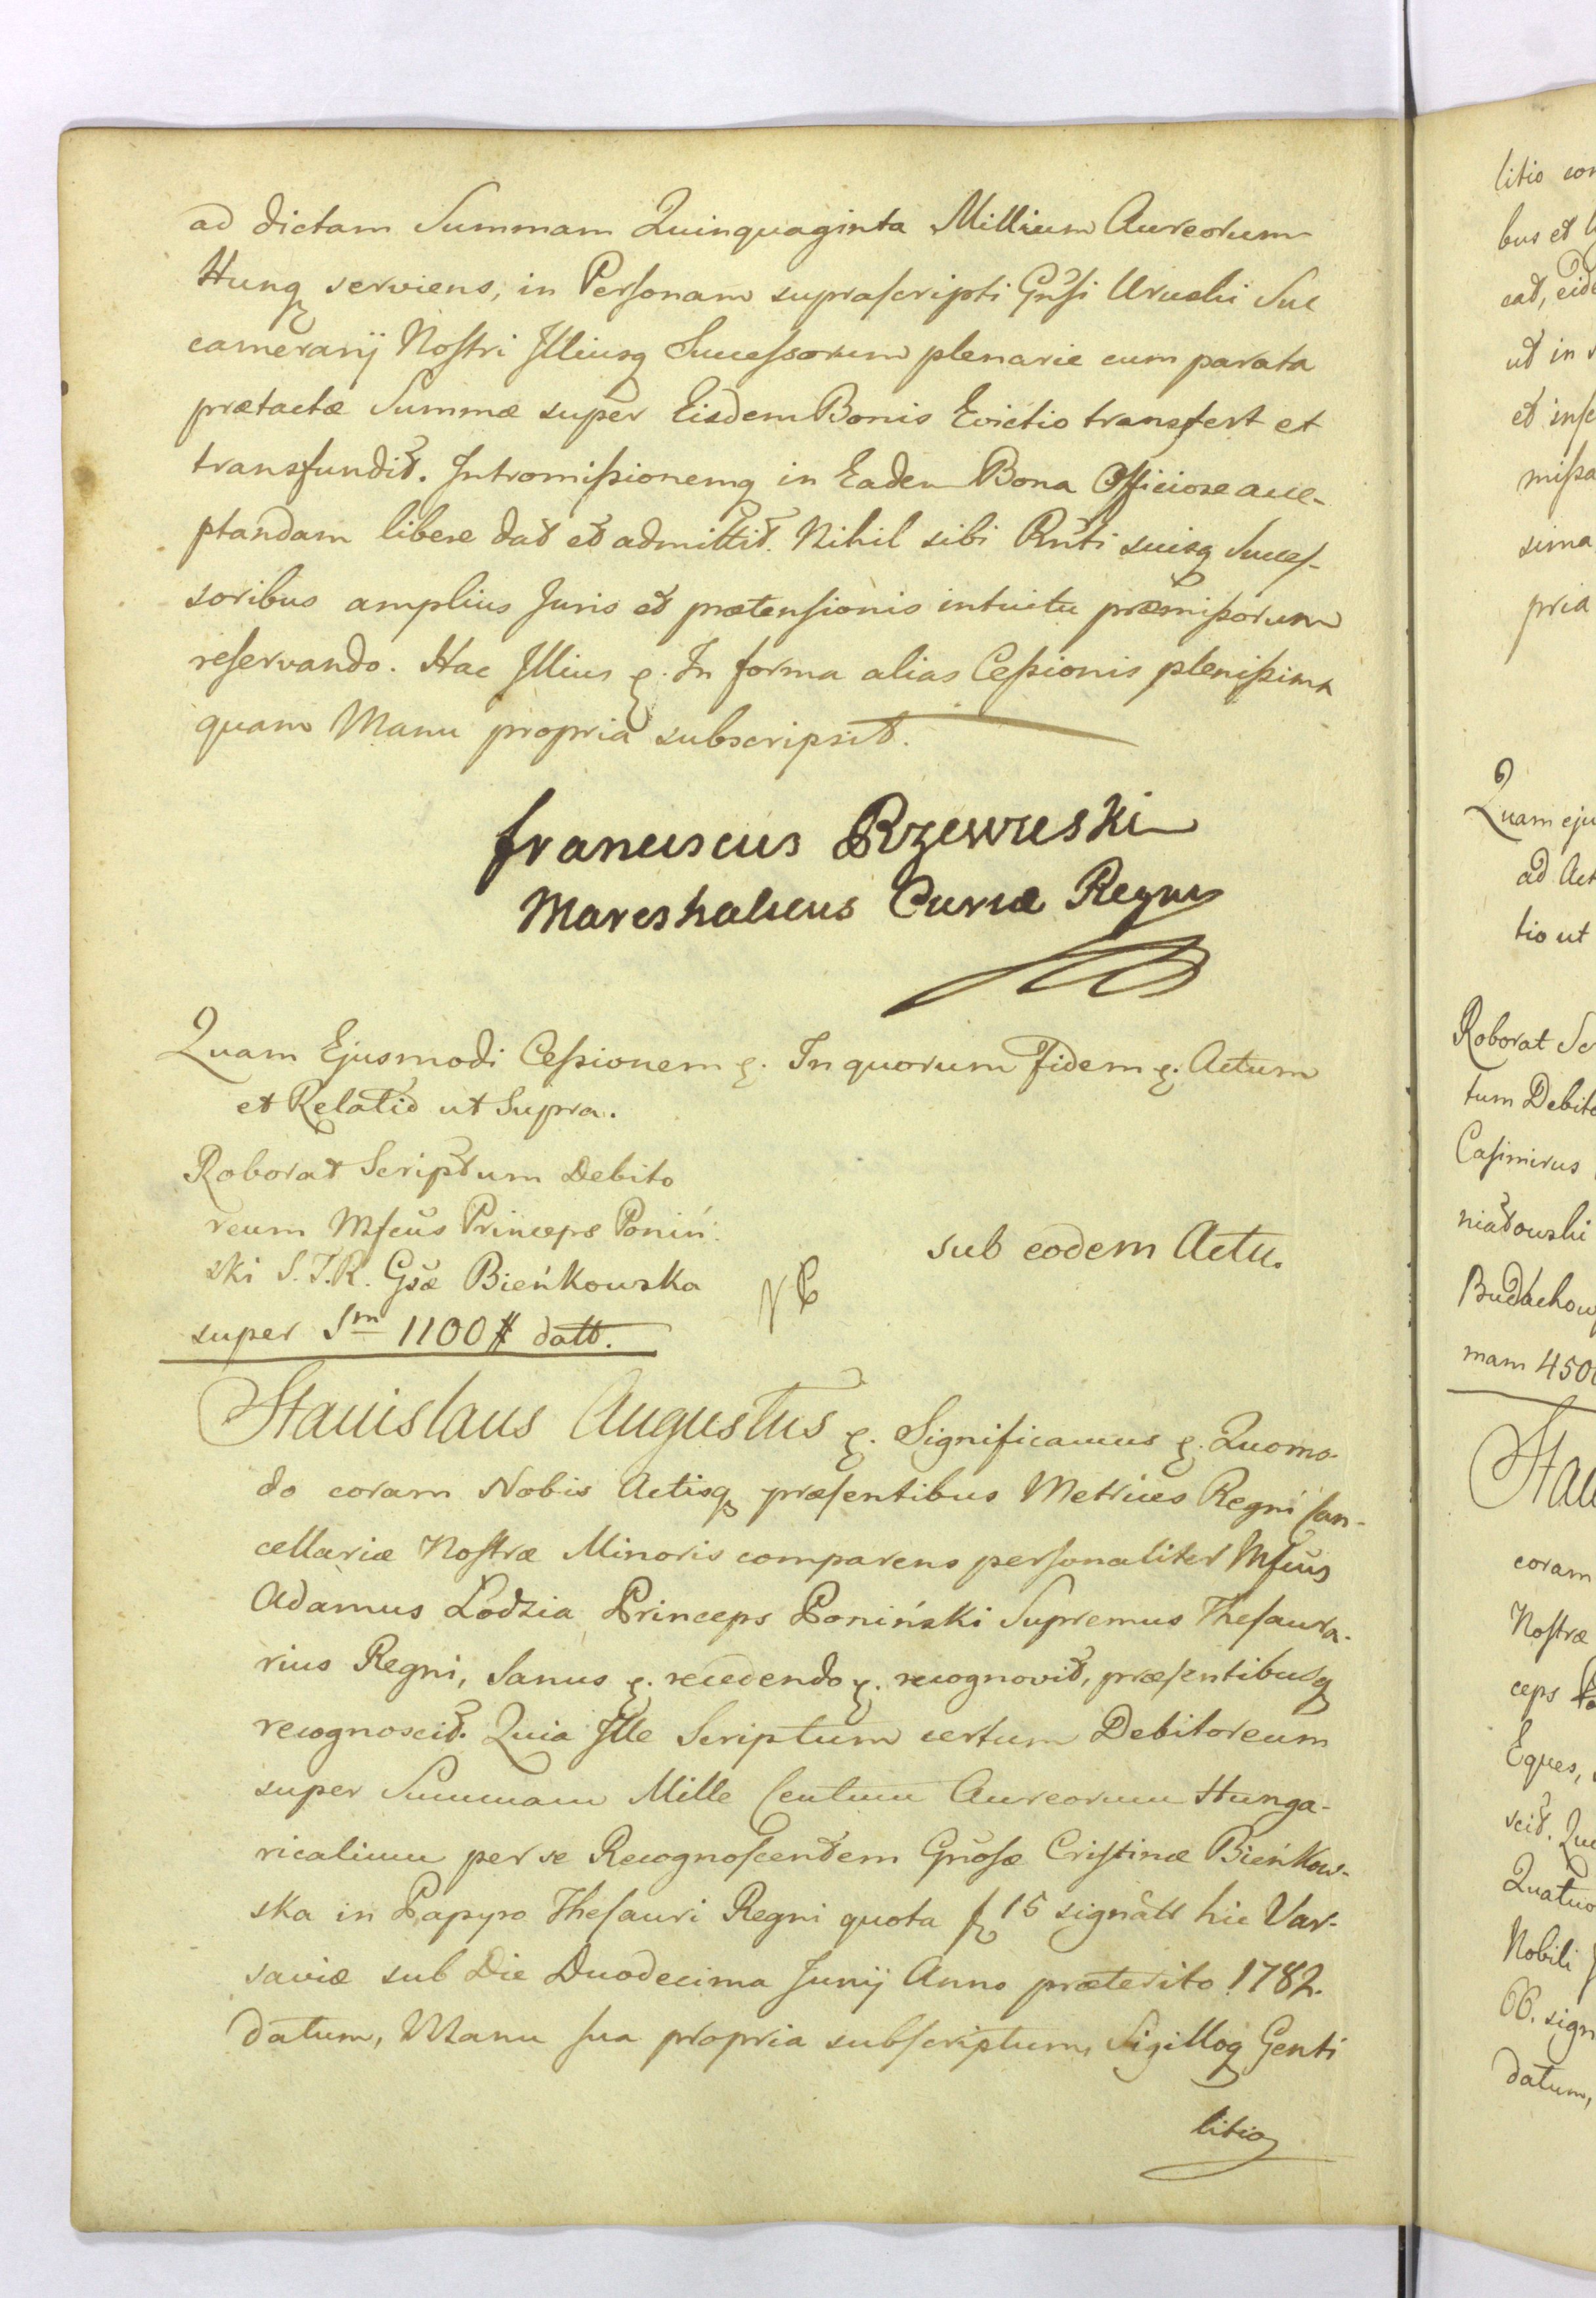 ad dictam Summam Quinquaginta Millium Aureorum
Hungq serviens, in Personam suprascripti Gnsi Uruski Suc
camerarij Nostri Illiusq Successorum plenarie cum parata
prætactæ Summæ super Eisdem Bonis Evictio transfert et
transfundit. Intromissionemq in Eadem Bona Officiose acce-
ptandam libere dat et admittit. Nihil sibi Rnti suisq Succes-
soribus amplius Juris et prætensionis intuitu præmissorum
reservando. Hac Illius ę. In forma alias Cessionis plenissima
quam Manu propria subscripsit.
Franciscus Rzewuski
Mareshalcus Curiæ Regni
Quam Ejusmodi Cessionem ę. In quorum Fidem ę. Actum
et Relatio ut Supra.
Roborat Scriptum Debito
reum Mfcus Princeps Poniń
ski S.T.R. Gsæ Bieńkowska
super Sm 1100 # datt.
NB
sub eodem Actu.
Stanislaus Augustus ę. Significamus ę. Quomo-
do coram Nobis Actisq præsentibus Metrices Regni Can-
cellariæ Nostræ Minoris comparens personaliter Mfcus
Adamus Łodzia Princeps Poniński Supremus Thesaura-
rius Regni, Sanus ę. recedendo ę. recognovit, præsentibusq
recognoscit. Quia Ille Scriptum certum Debitoreum
super Summam Mille Centum Aureorum Hunga-
ricalium per se Recognoscentem Gnosæ Cristinæ Bieńkow-
ska in Papyro Thesauri Regni quota f 15 signatt hic Var-
saviæ sub Die Duodecima Junij Anno præterito 1782.
datum, Manu sua propria subscriptum, Sigilloq Genti
litio
litio con
bus et
cat, eide
ut in
et inse
missa
sima
pria
Quam eju
ad Act
tio ut
Roborat Sc
tum Debito
Casimirus
niatowski
Budachow
mam 450
Stau
coram
Nostræ
ceps
Eques,
scit. Qu
Quatuo
Nobili
66. sign
datum,